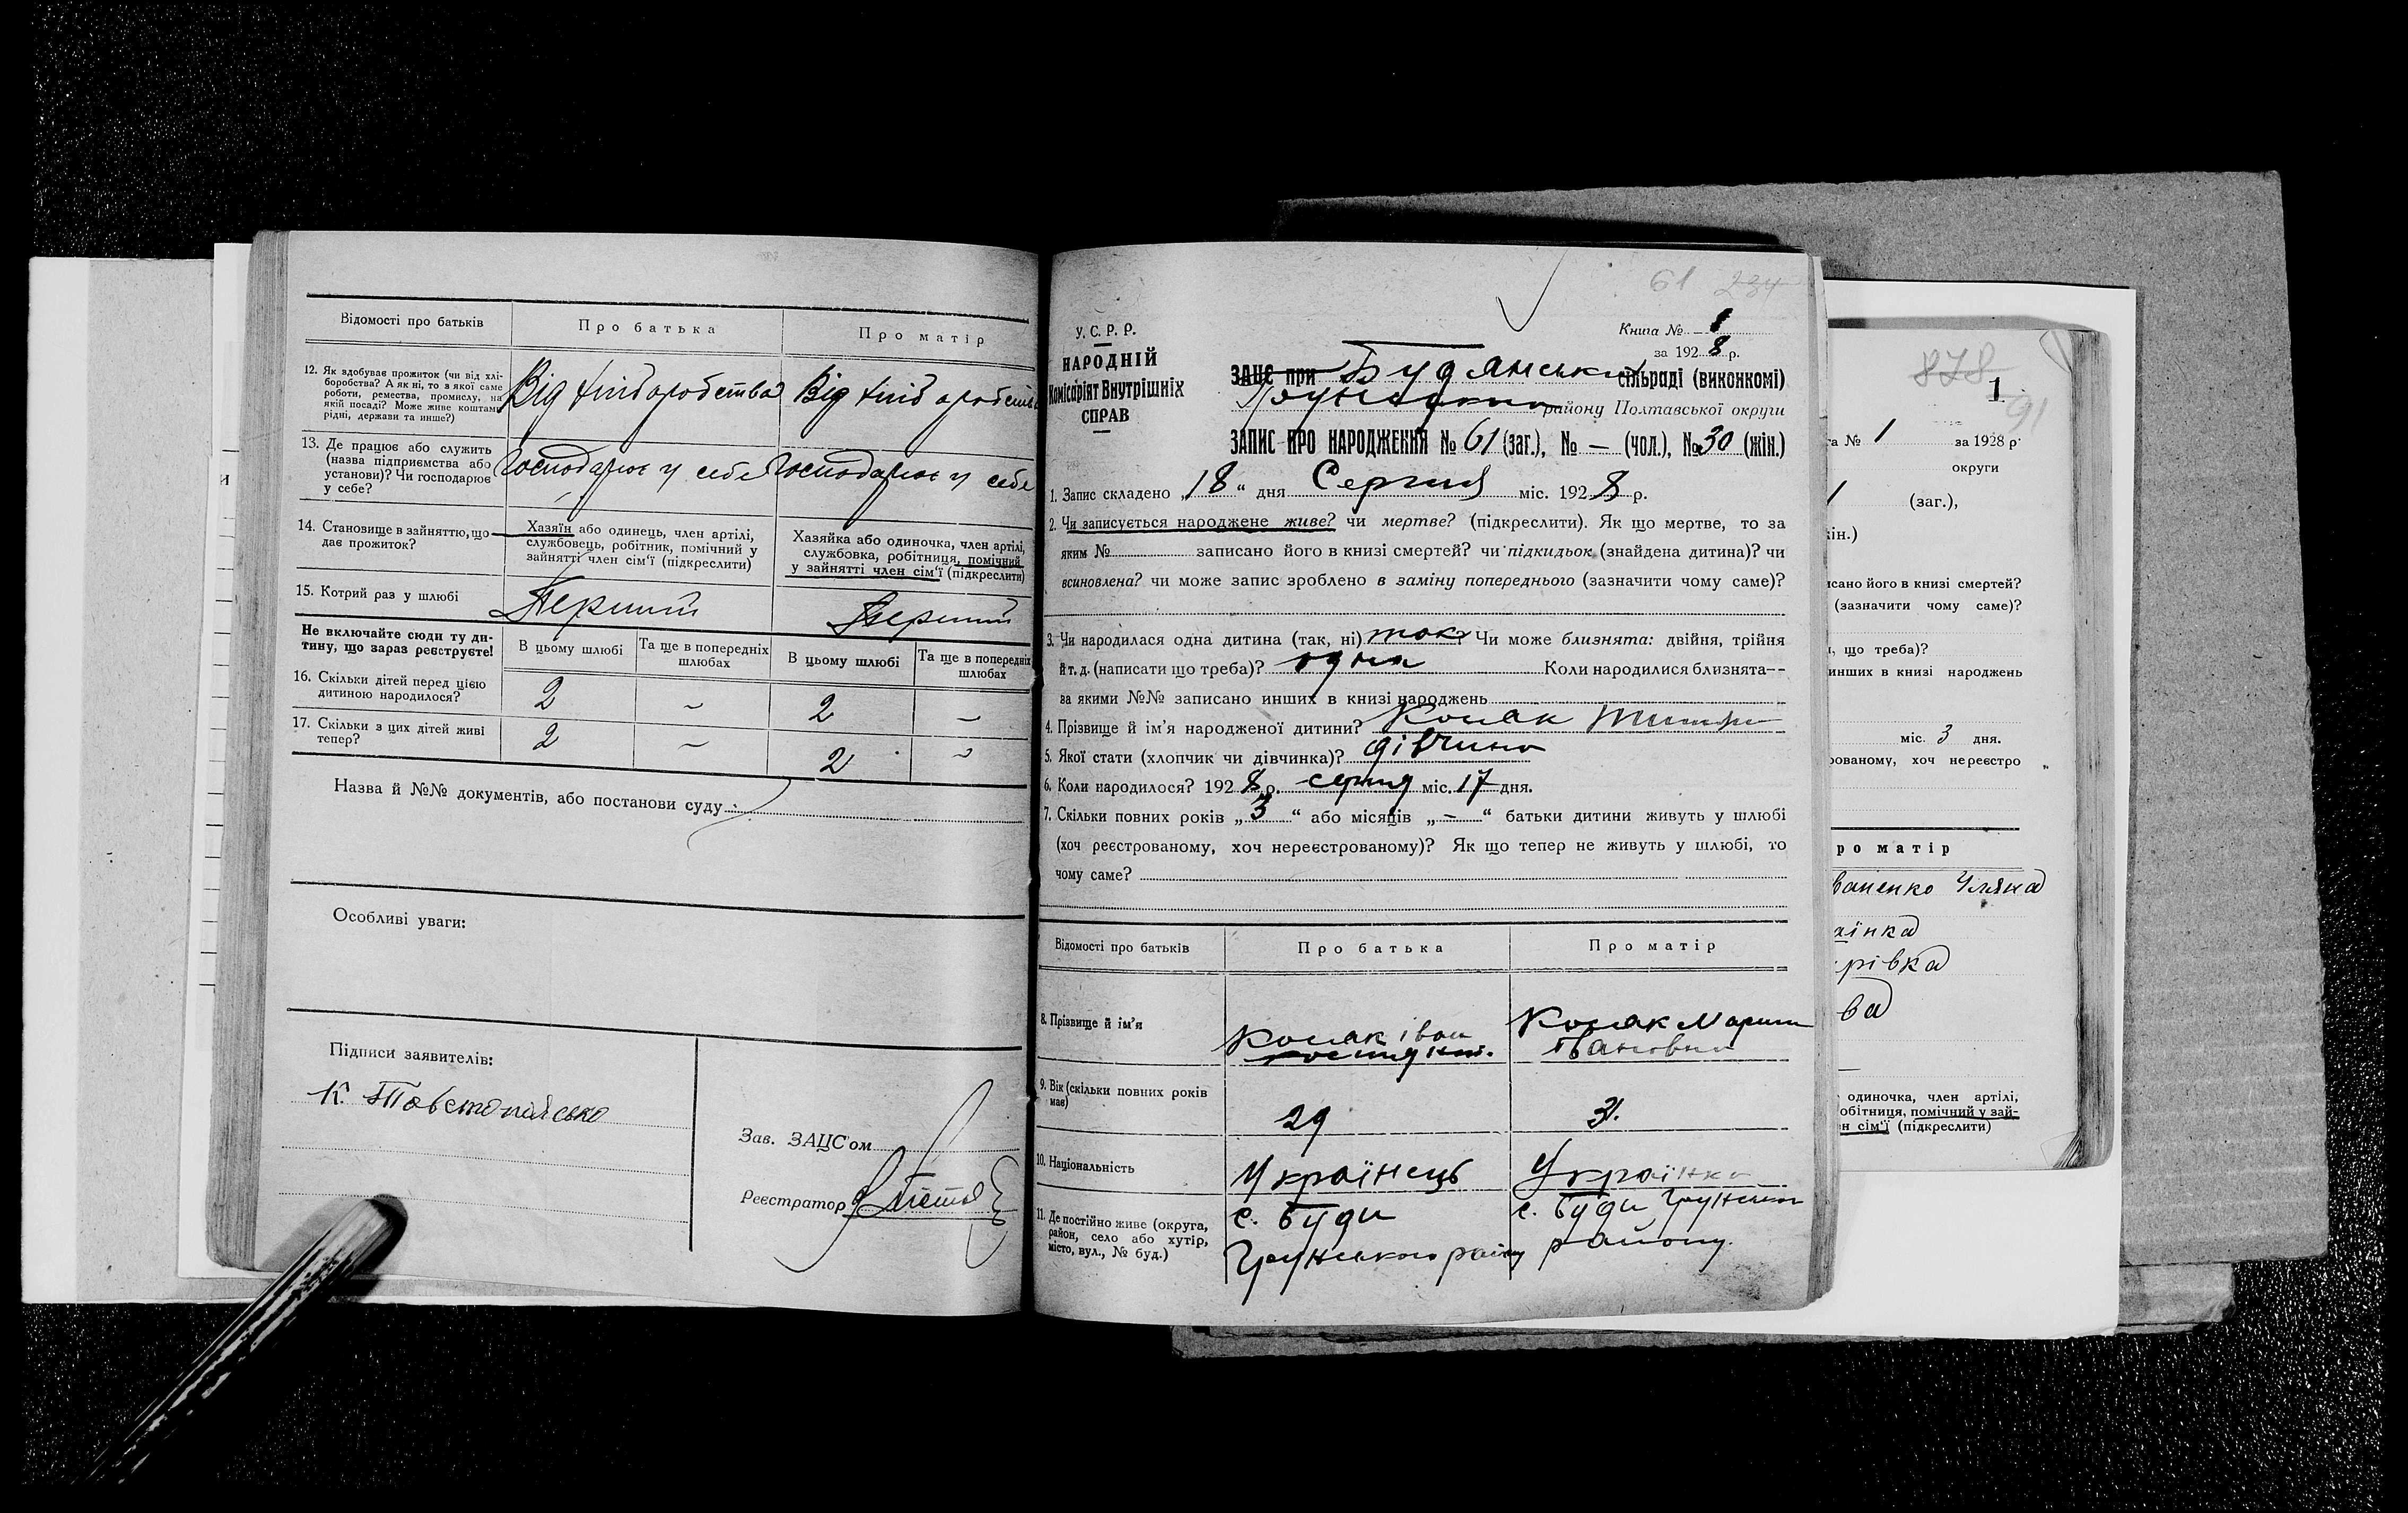 Відомості про батьків
Про батька
Про матір
12. Як здобуває прожиток (чи від хлі-
боробства? А як ні, то з якої саме
роботи, ремества, промислу, на
якій посаді? Може живе коштами
рідні, держави та инше?)
Від хліборобства
Від хліборобства
13. Де працює або служить
(назва підприємства або
установи)? Чи господарює
у себе?
Господарює у себе
Господарює у себе
14. Становище в зайняттю, що
дає прожиток?
Хазяїн або одинець, член артілі,
службовець, робітник, помічний у
зайнятті член сім'ї (підкреслити)
Хазяйка або одиночка, член артілі,
службовка, робітниця, помічний
у зайнятті член сім'ї (підкреслити)
15. Котрий раз у шлюбі
Перший
Перший
Не включайте сюди ту ди-
тину, що зараз реєструєте!
В цьому шлюбі
Та ще в попередніх
шлюбах
В цьому шлюбі
Та ще в попередніх
шлюбах
16. Скільки дітей перед цією
дитиною народилося?
2
–
2
–
17. Скільки з цих дітей живі
тепер?
2
–
2
–
Назва й №№ документів, або постанови суду
Особливі уваги:
Підписи заявителів:
К.
Зав. ЗАЦС'ом
Реєстратор
61 234
У.С.Р.Р.
НАРОДНІЙ
Комісаріят Внутрішніх
СПРАВ
Книга № 1
за 1928 р.
ЗАЦС при Будянський сільраді (виконкомі)
району Полтавської округи
ЗАПИС ПРО НАРОДЖЕННЯ № 61 (заг.), № — (чол.), № 30 (жін.)
1. Запис складено „18“ дня Серпня міс. 1928 р.
2. Чи записується народжене живе? чи мертве? (підкреслити). Як що мертве, то за
яким № записано його в книзі смертей? чи підкидьок (знайдена дитина)? чи
всиновлена? чи може запис зроблено в заміну попереднього (зазначити чому саме)?
3. Чи народилася одна дитина (так, ні) так? Чи може близнята: двійня, трійня
й т. д. (написати що треба)? одна Коли народилися близнята—
за якими №№ записано инших в книзі народжень
4. Прізвище й ім'я народженої дитини?
5. Якої стати (хлопчик чи дівчинка)? дівчина
6. Коли народилося? 1928 р. серпня міс. 17 дня.
7. Скільки повних років „3“ або місяців „–“ батьки дитини живуть у шлюбі
(хоч реєстрованому, хоч нереєстрованому)? Як що тепер не живуть у шлюбі, то
чому саме?
Відомості про батьків
Про батька
Про матір
8. Прізвище й ім'я
Іван
Івановна
9. Вік (скільки повних років
має)
29
31.
10. Національність
Українець
Українка
11. Де постійно живе (округа,
район, село або хутір,
місто, вул., № буд.)
с. Буди
Грунського райну
с. Буди Грунського
району.
878
1
91
га № 1 за 1928 р.
округи
(заг.),
кін.)
исано його в книзі смертей?
(зазначити чому саме)?
, що треба)?
инших в книзі народжень
міс. 3 дня.
рованому, хоч нереєстро
ро матір
ваненко Уляна
аїнка
рівка
ва
одиночка, член артілі,
обітниця, помічний у зай-
н сім'ї (підкреслити)